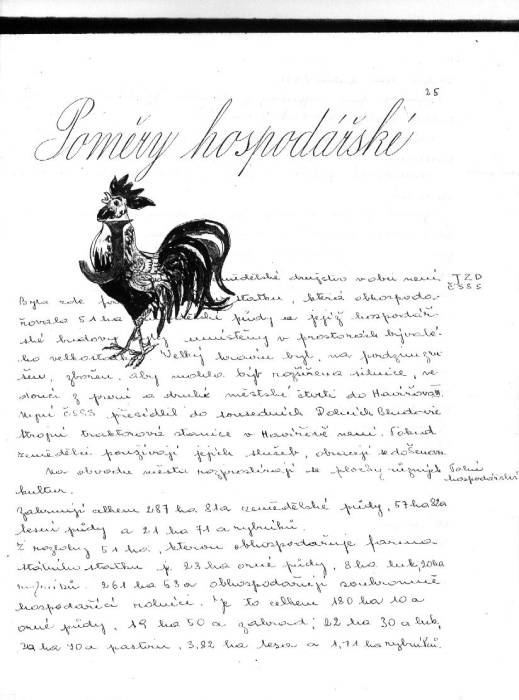 25
Poměry hospodářské
J
zemědelské družstvo v obci není JZD
Byla zde statku, která obhospoda- ČSSS
řovala 51 ha půdy a jejíž hospodář-
ské budovy umístěny v prostorách bývalé-
ho velkostatku. Velký kravín byl, na podzim
zbořen, aby mohla být rozšířena silnice, ve-
doucí z první a druhé městské čtvrti do Havířova III.
Nyní ČSSS přesídlil do sousedních Dolních Bludovic
Strojní traktorová stanice v Havířově není. Pokud
zemědělci používají jejích služeb, obracejí se
Na obvodu města rozprostírají se plochy různých Polní
kultur. hospodářství
Zabírají celkem 287 ha 81 a zemědělské půdy, 57 ha 82 a
lesní půdy a 21 ha 71 a rybníků.
Z rozlohy 51 ha, kterou obhospodařuje farma
státního statku je 23 ha orné půdy, 8 ha luk, 20 ha
rybníků. 261 ha 53 a obhospodařují soukromně
hospodařící rolníci. Je to celkem 180 ha 10 a
orné půdy, 19 ha 50 a zahrad, 22 ha 30 a luk,
ha 70 a pastvin, 3,82 ha lesa a 1,71 ha rybníků.